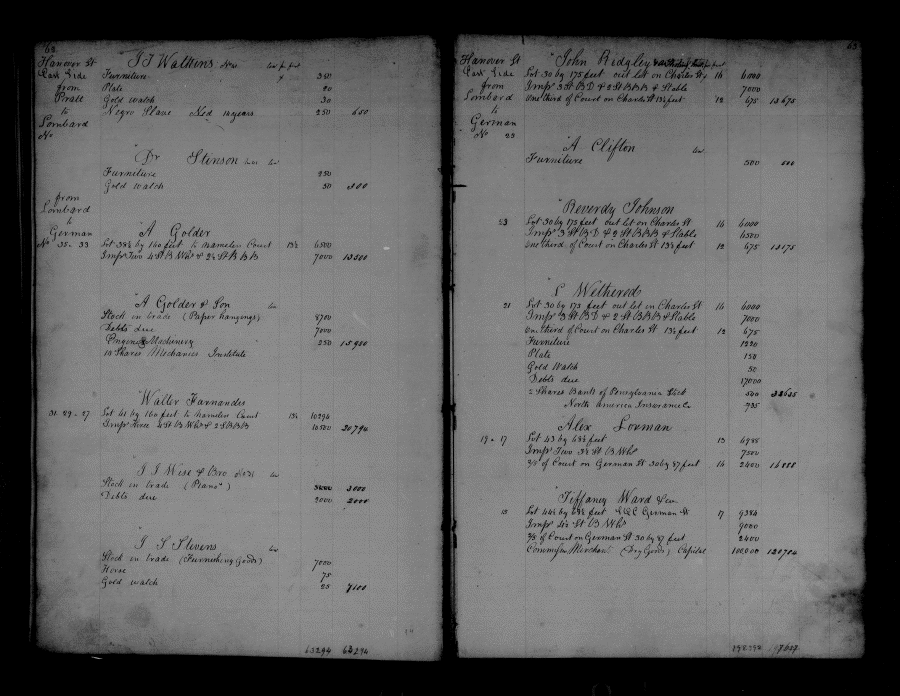 62
Hanover St
East Side
from
Pratt
to
Lombard
No
J T Watkins
Furniture 350
Plate 20
Gold watch 30
Negro Slave Ned 12 years 250 650
Dr Stinson
Furniture 250
Gold watch 50 300
from
Lombard
to
German
No 35-33
A Golder
Lot 38½ by 160 feet to nameless Court 13½ 6500
Imps Two 4 St B Whs & 2½ St B B B 7000 13500
A Golder & Son
Stock in trade (Paper hangings) 8700
Debts due 7000
Engine & Machinery 250 15950
10 Shares Mechanics Institute
Walter Farnandes
31 29-27 Lot 61 by 160 feet to nameless Court 13½ 10294
Imps three 4 St B Whs & 2 S B B B 10500 20794
J J Wise & Bro
Stock in trade (Plano) 3000 3000
Debts due 2000 2000
J S Stevens
Stock in trade (Furnishing Goods) 7000
Horse 75
Gold watch 25 7100
63294 63294
63
Hanover St
East Side
from
Lombard
to
German
No 25
John Ridgley
Lot 30 by 175 feet out let on Charles St 16 6000
Imps 3 St B D & 2 St B B B & Stable 7000
One third of Court on Charles St 13½ feet 12 675 13675
A Clifton
Furniture 500 500
Reverdy Johnson
23 Lot 30 by 175 feet out let on Charles St 16 6000
Imps 3 St B D & 2 St B B B & Stable 6500
One third of Court on Charles St 13½ feet 12 675 13175
L Wethered
21 Lot 30 by 175 feet out let on Charles St 16 6000
Imps 3 St B D & 2 St B B B & Stable 7000
One third of Court on Charles St 13½ feet 12 675
Furniture 1220
Plate 150
Gold Watch 50
Debts due 17000
2 Shares Bank of Pennsylvania 500
North America Insurance Co 735
Alex Lorman
19-17 Lot 43 by feet 13
Imps Two 3½ St B Whs 7500
⅔ of Court on German St 30 by 87 feet 16 2400
Tiffany Ward & Co
15 Lot feet German St 17 9384
Imps 4½ St B Whs 9000
⅔ of Court on German St 30 by 87 feet 2400
Commission Merchant (Dry Goods) Capital 100,000